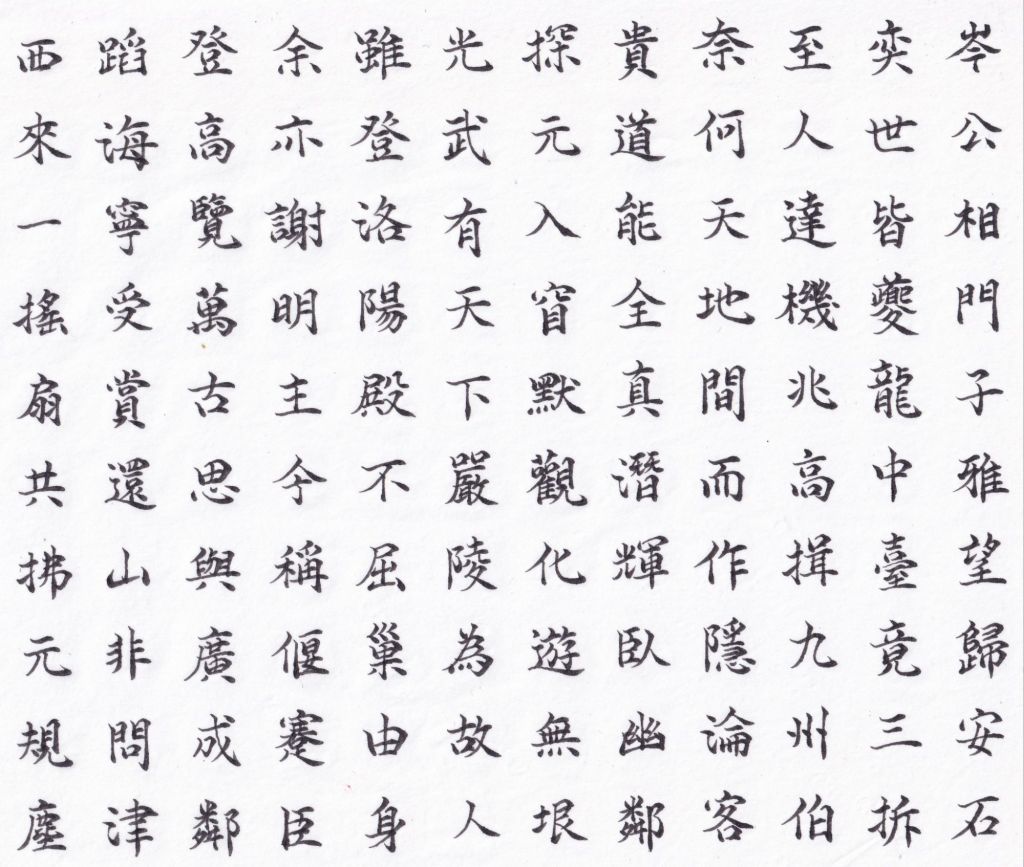 岑公相門子雅望歸安石
奕世皆夔龍中臺竟三拆
至人達機兆高揖九州伯
奈何天地間而作隱論客
貴道能全真潛輝臥幽鄰
探元入窅默觀化遊無垠
光武有天下嚴陵為故人
雖登洛陽殿不屈巢由身
余亦謝明主今稱偃蹇臣
登高覽萬古思與廣成鄰
蹈海寧受賞還山非問津
西來一搖扇共拂元規塵